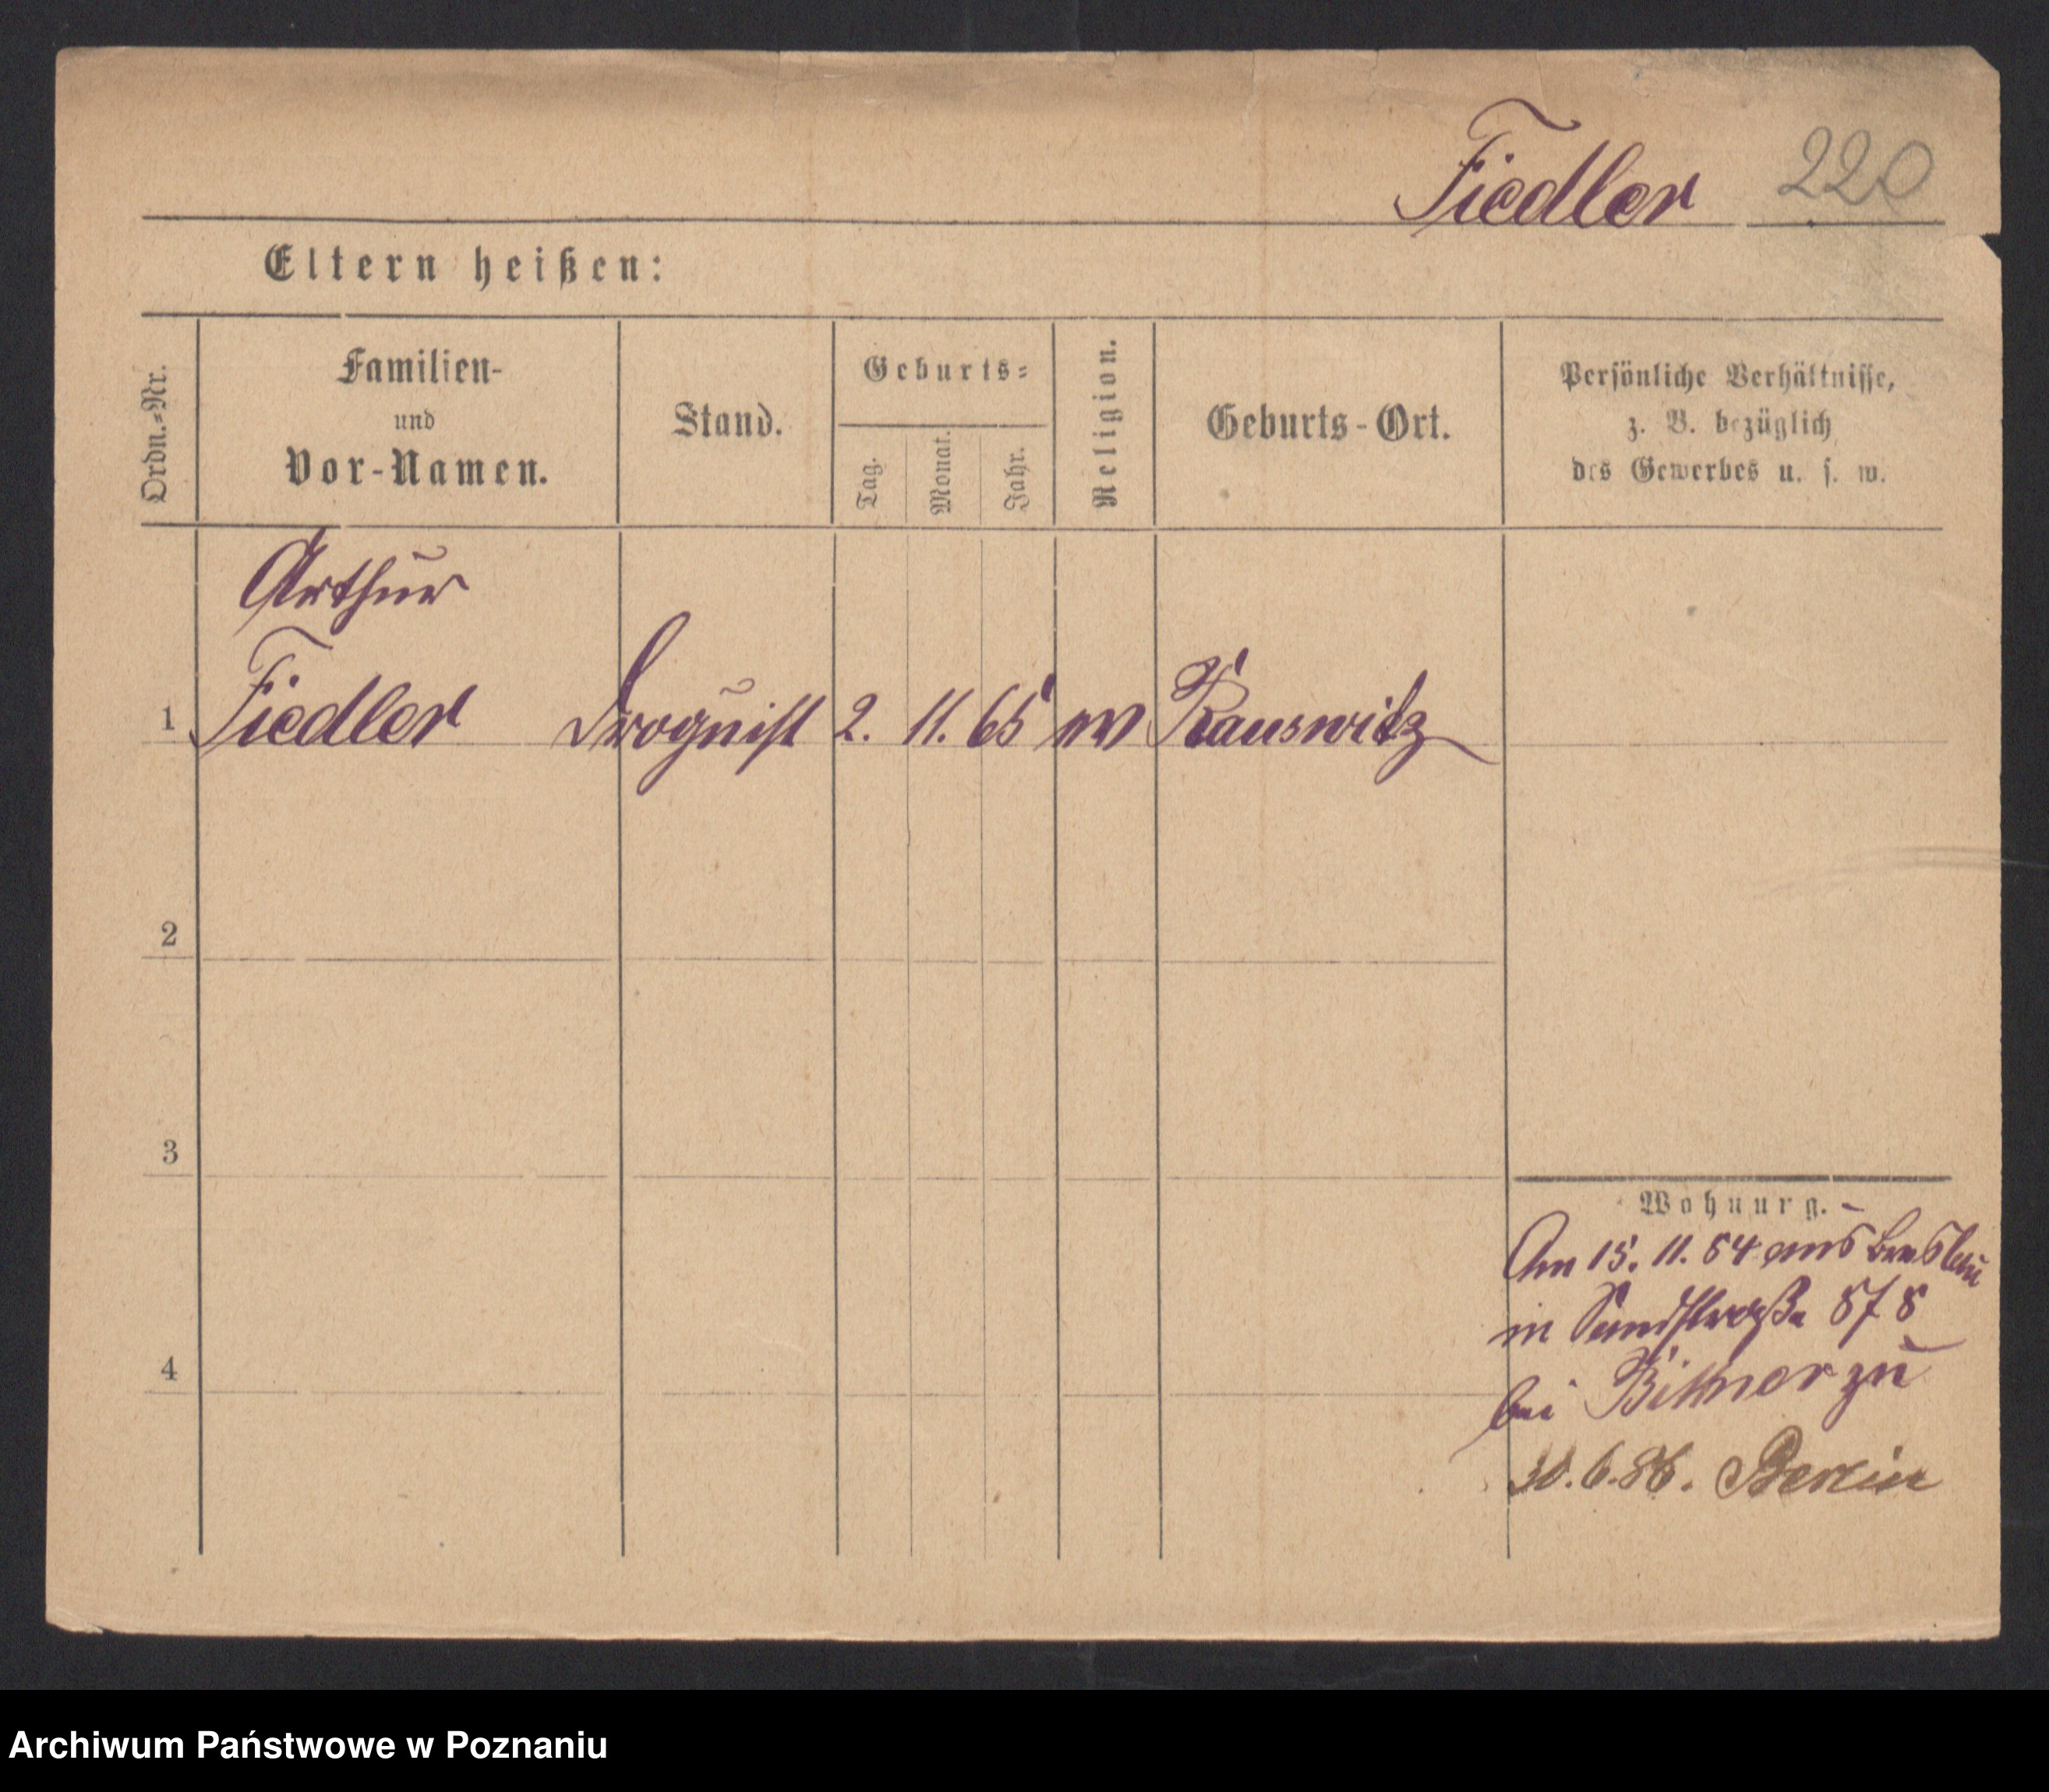 Fiedler 220
Eltern heißen:
Ordn.=Nr.
Familien-
und
Vor-Namen.
Stand.
Geburts=
Tag.
Monat.
Jahr.
Religion.
Geburts-Ort.
Persönliche Verhältnisse,
z. B. bezüglich
des Gewerbes u. s. w.
Arthur
1 Fiedler Droguist 2. 11. 65 ev Rauswitz
2
3
4
Wohnung.
Am 15. 11. 84 aus Breslau
in Sandstraße 8
bei Bittner zu
30.6.86. Berlin
Archiwum Państwowe w Poznaniu